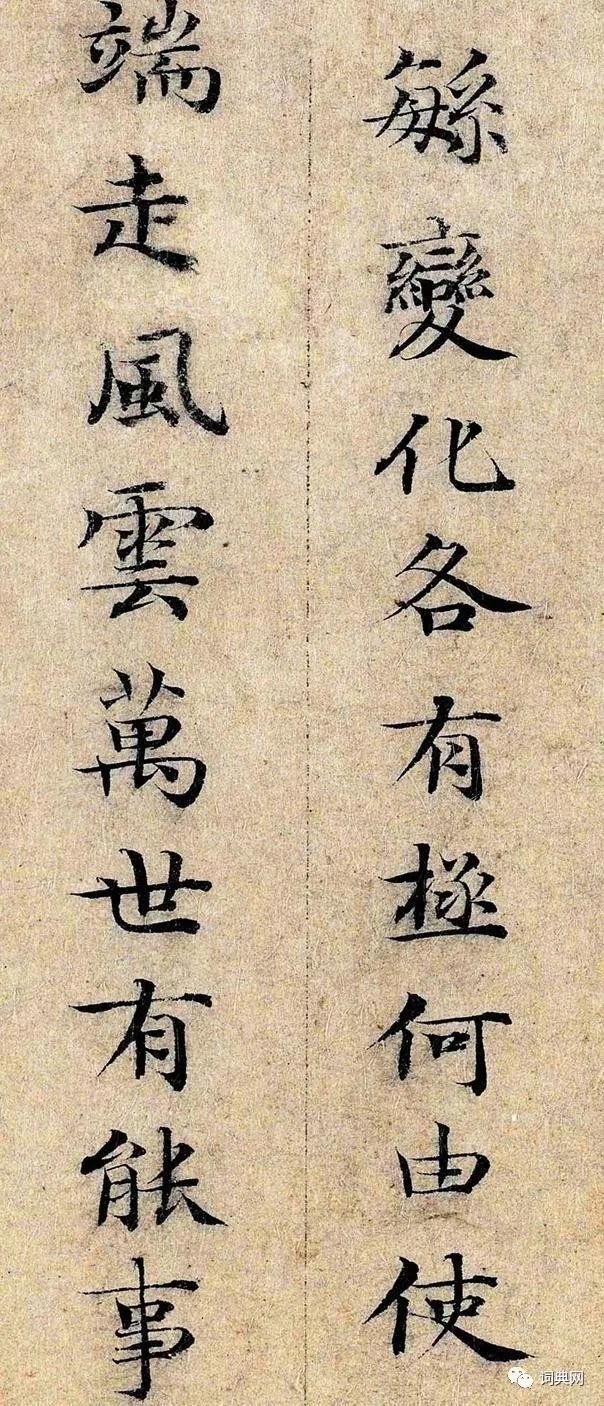 緐變化各有極何由使
端走風雲萬世有能事
词典网